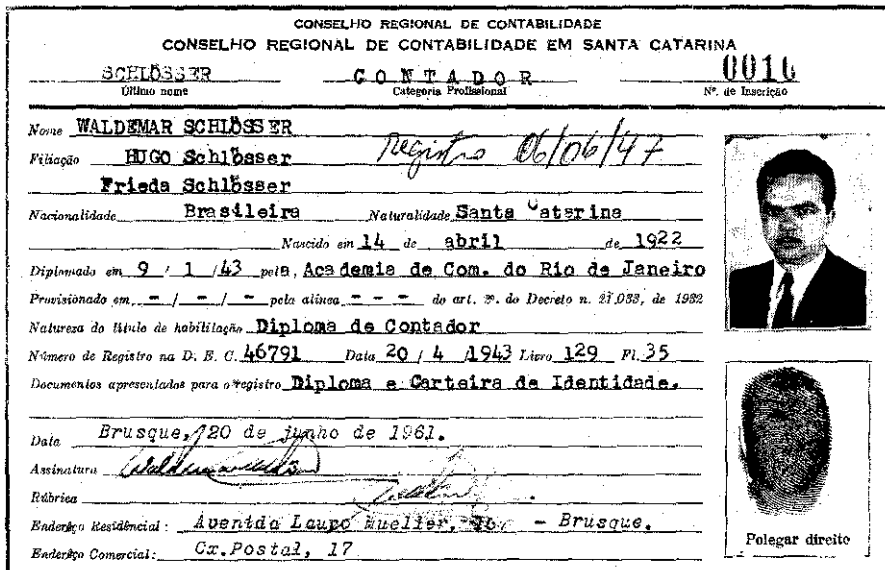 CONSELHO REGIONAL DE CONTABILIDADE
CONSELHO REGIONAL DE CONTABILIDADE EM SANTA CATARINA
SCHLÖSSER CONTADOR
Último nome Categoria Profissional Nº. de Inscrição
Nome WALDEMAR SCHLÖSSER
Filiação HUGO Schlösser Registro 06/06/47
Frieda Schlösser
Nacionalidade Brasileira Naturalidade Santa Catarina
Nascido em 14 de abril de 1922
Diplomado em 9 / 1 /43 pela, Academia de Com. do Rio de Janeiro
Provisionado em - / - / - pela alinea - - - do art. 2º. do Decreto n. 21.033, de 1932
Natureza do título de habilitação Diploma de Contador
Número de Registro na D. E. C. 46791 Data 20 / 4 /1943 Livro 129 Fl. 35
Documentos apresentados para o registro Diploma e Carteira de Identidade.
Data Brusque, 20 de junho de 1961.
Assinatura
Rúbrica
Enderêço Residêncial: Avenida Lauro Mueller, - Brusque.
Enderêço Comercial: Cx.Postal, 17
Polegar direito